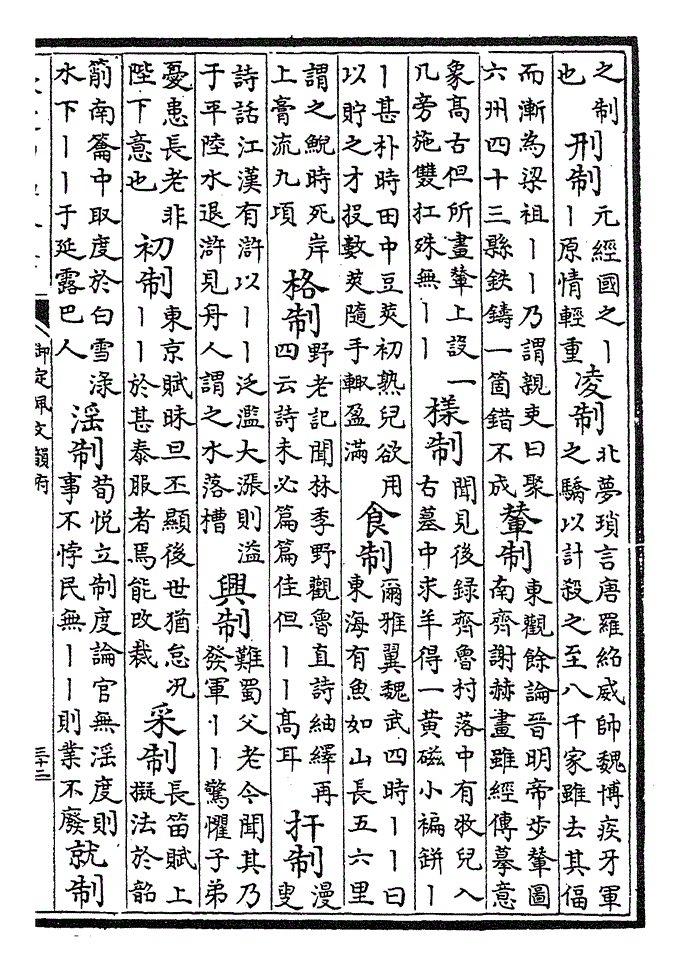 之制
也
刑制
元經國之丨
丨原情輕重
凌制
北夢瑣言唐羅紹威帥魏博疾牙軍
之驕以計殺之至八千家雖去其偪
而漸為梁祖丨丨乃謂親吏曰聚
六州四十三縣鉄鑄一箇錯不成
輦制
東觀餘論晉明帝步輦圖
南齊謝赫畫雖經傳摹意
象髙古但所畫輦上設一
几旁施雙扛殊無丨丨
樣制
聞見後録齊魯村落中有牧兒入
古墓中求羊得一黃磁小褊缾丨
丨甚朴時田中豆莢初熟兒欲用
以貯之才投數莢隨手輙盈滿
食制
爾雅翼魏武四時丨丨曰
東海有魚如山長五六里
謂之鯢時死岸
上膏流九項
格制
野老記聞林季野觀魯直詩紬繹再
四云詩未必篇篇佳但丨丨髙耳
扞制
漫
叟
詩話江漢有滸以丨丨泛濫大漲則溢
于平陸水退滸見舟人謂之水落槽
興制
難蜀父老今聞其乃
發軍丨丨驚懼子弟
憂患長老非
陛下意也
初制
東京賦昧旦丕顯後世猶怠况
丨丨於甚泰服者焉能改裁
采制
長笛賦上
擬法於韶
箾南籥中取度於白雪淥
水下丨丨于延露巴人
淫制
荀悅立制度論官無淫度則
事不悖民無丨丨則業不廢
就制
御定佩文韻府
三十二